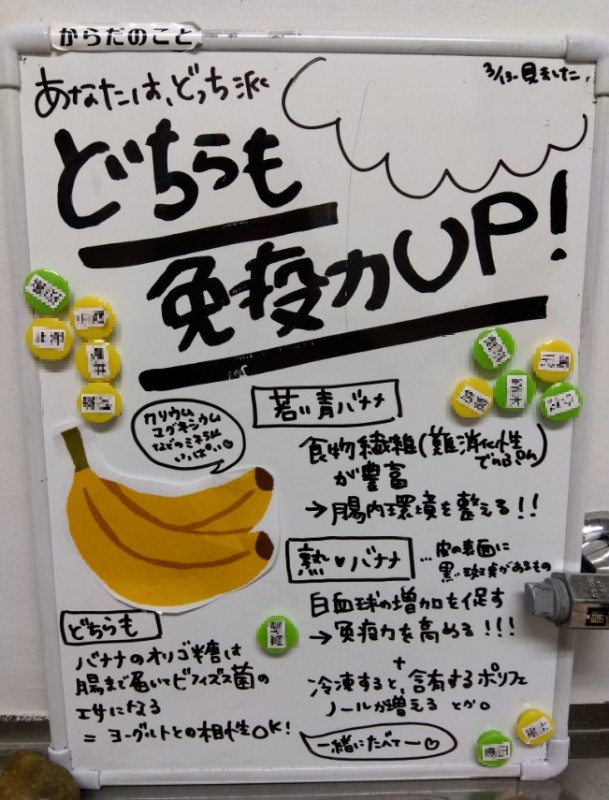 からだのこと
3/13. 見ました.
あなたは、どっち派
どちらも
免疫力UP!
カリウム
マグネシウム
などのミネラル
いっぱい♡
若い青バナナ
食物繊維(難消化性
でんぷん)
が豊富
→腸内環境を整える!!
熟♡バナナ
…皮の表面に
黒い斑点があるもの
白血球の増加を促す
→免疫力を高める!!!
+
冷凍すると、含有するポリフェ
ノールが増える とか。
一緒にたべてー♡
どちらも
バナナのオリゴ糖は
腸まで届いてビフィズス菌の
エサになる
=ヨーグルトとの相性OK!